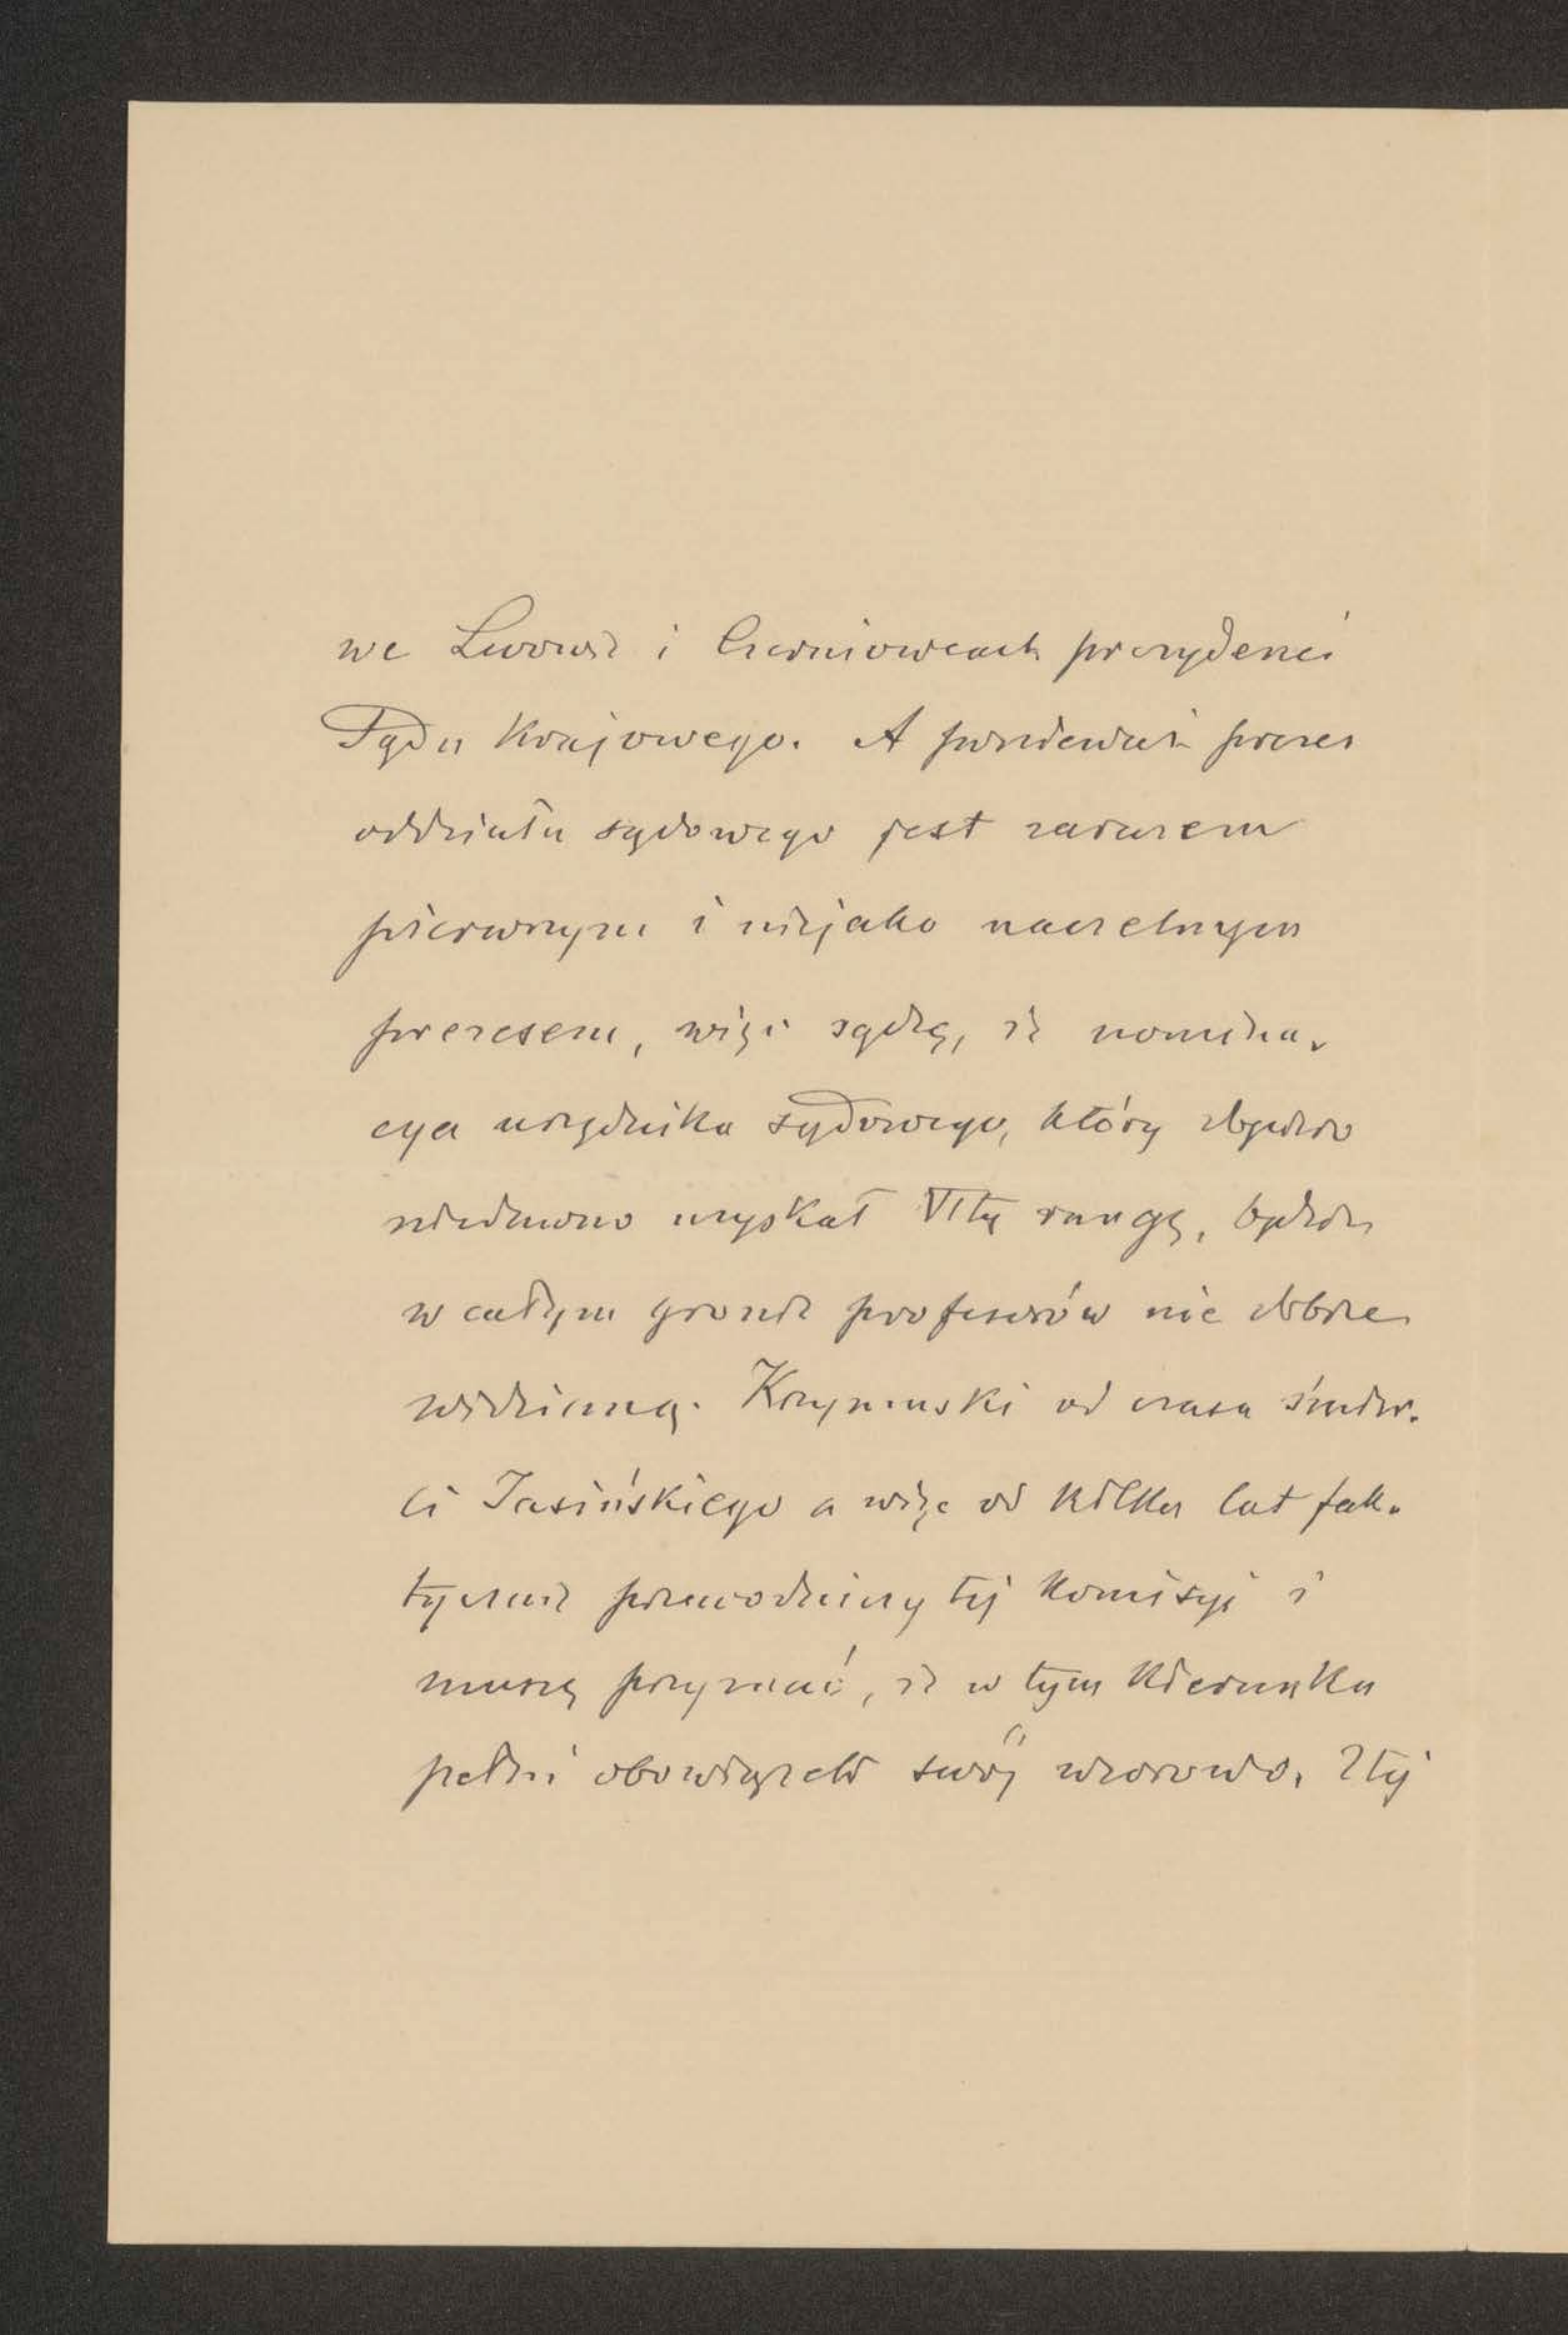 we Lwowie i Czerniowcach prezydenci
Sądu Krajowego. A ponieważ prezes
oddziału sądowego jest zarazem
pierwszym i niejako naczelnym
prezesem, więc sądzę, iż nomina-
cya urzędnika sądowego, który dopiero
niedawno uzyskał VItą rangę, będzie
w całym gronie profesorów nie dobrze
widzianą. Krzymuski od czasu śmier-
ci Jasińskiego a więc od kilku lat fak-
tycznie przewodniczy tej komisyi i
muszę przyznać, iż w tym kierunku
pełni obowiązek swój wzorowo. Z tej